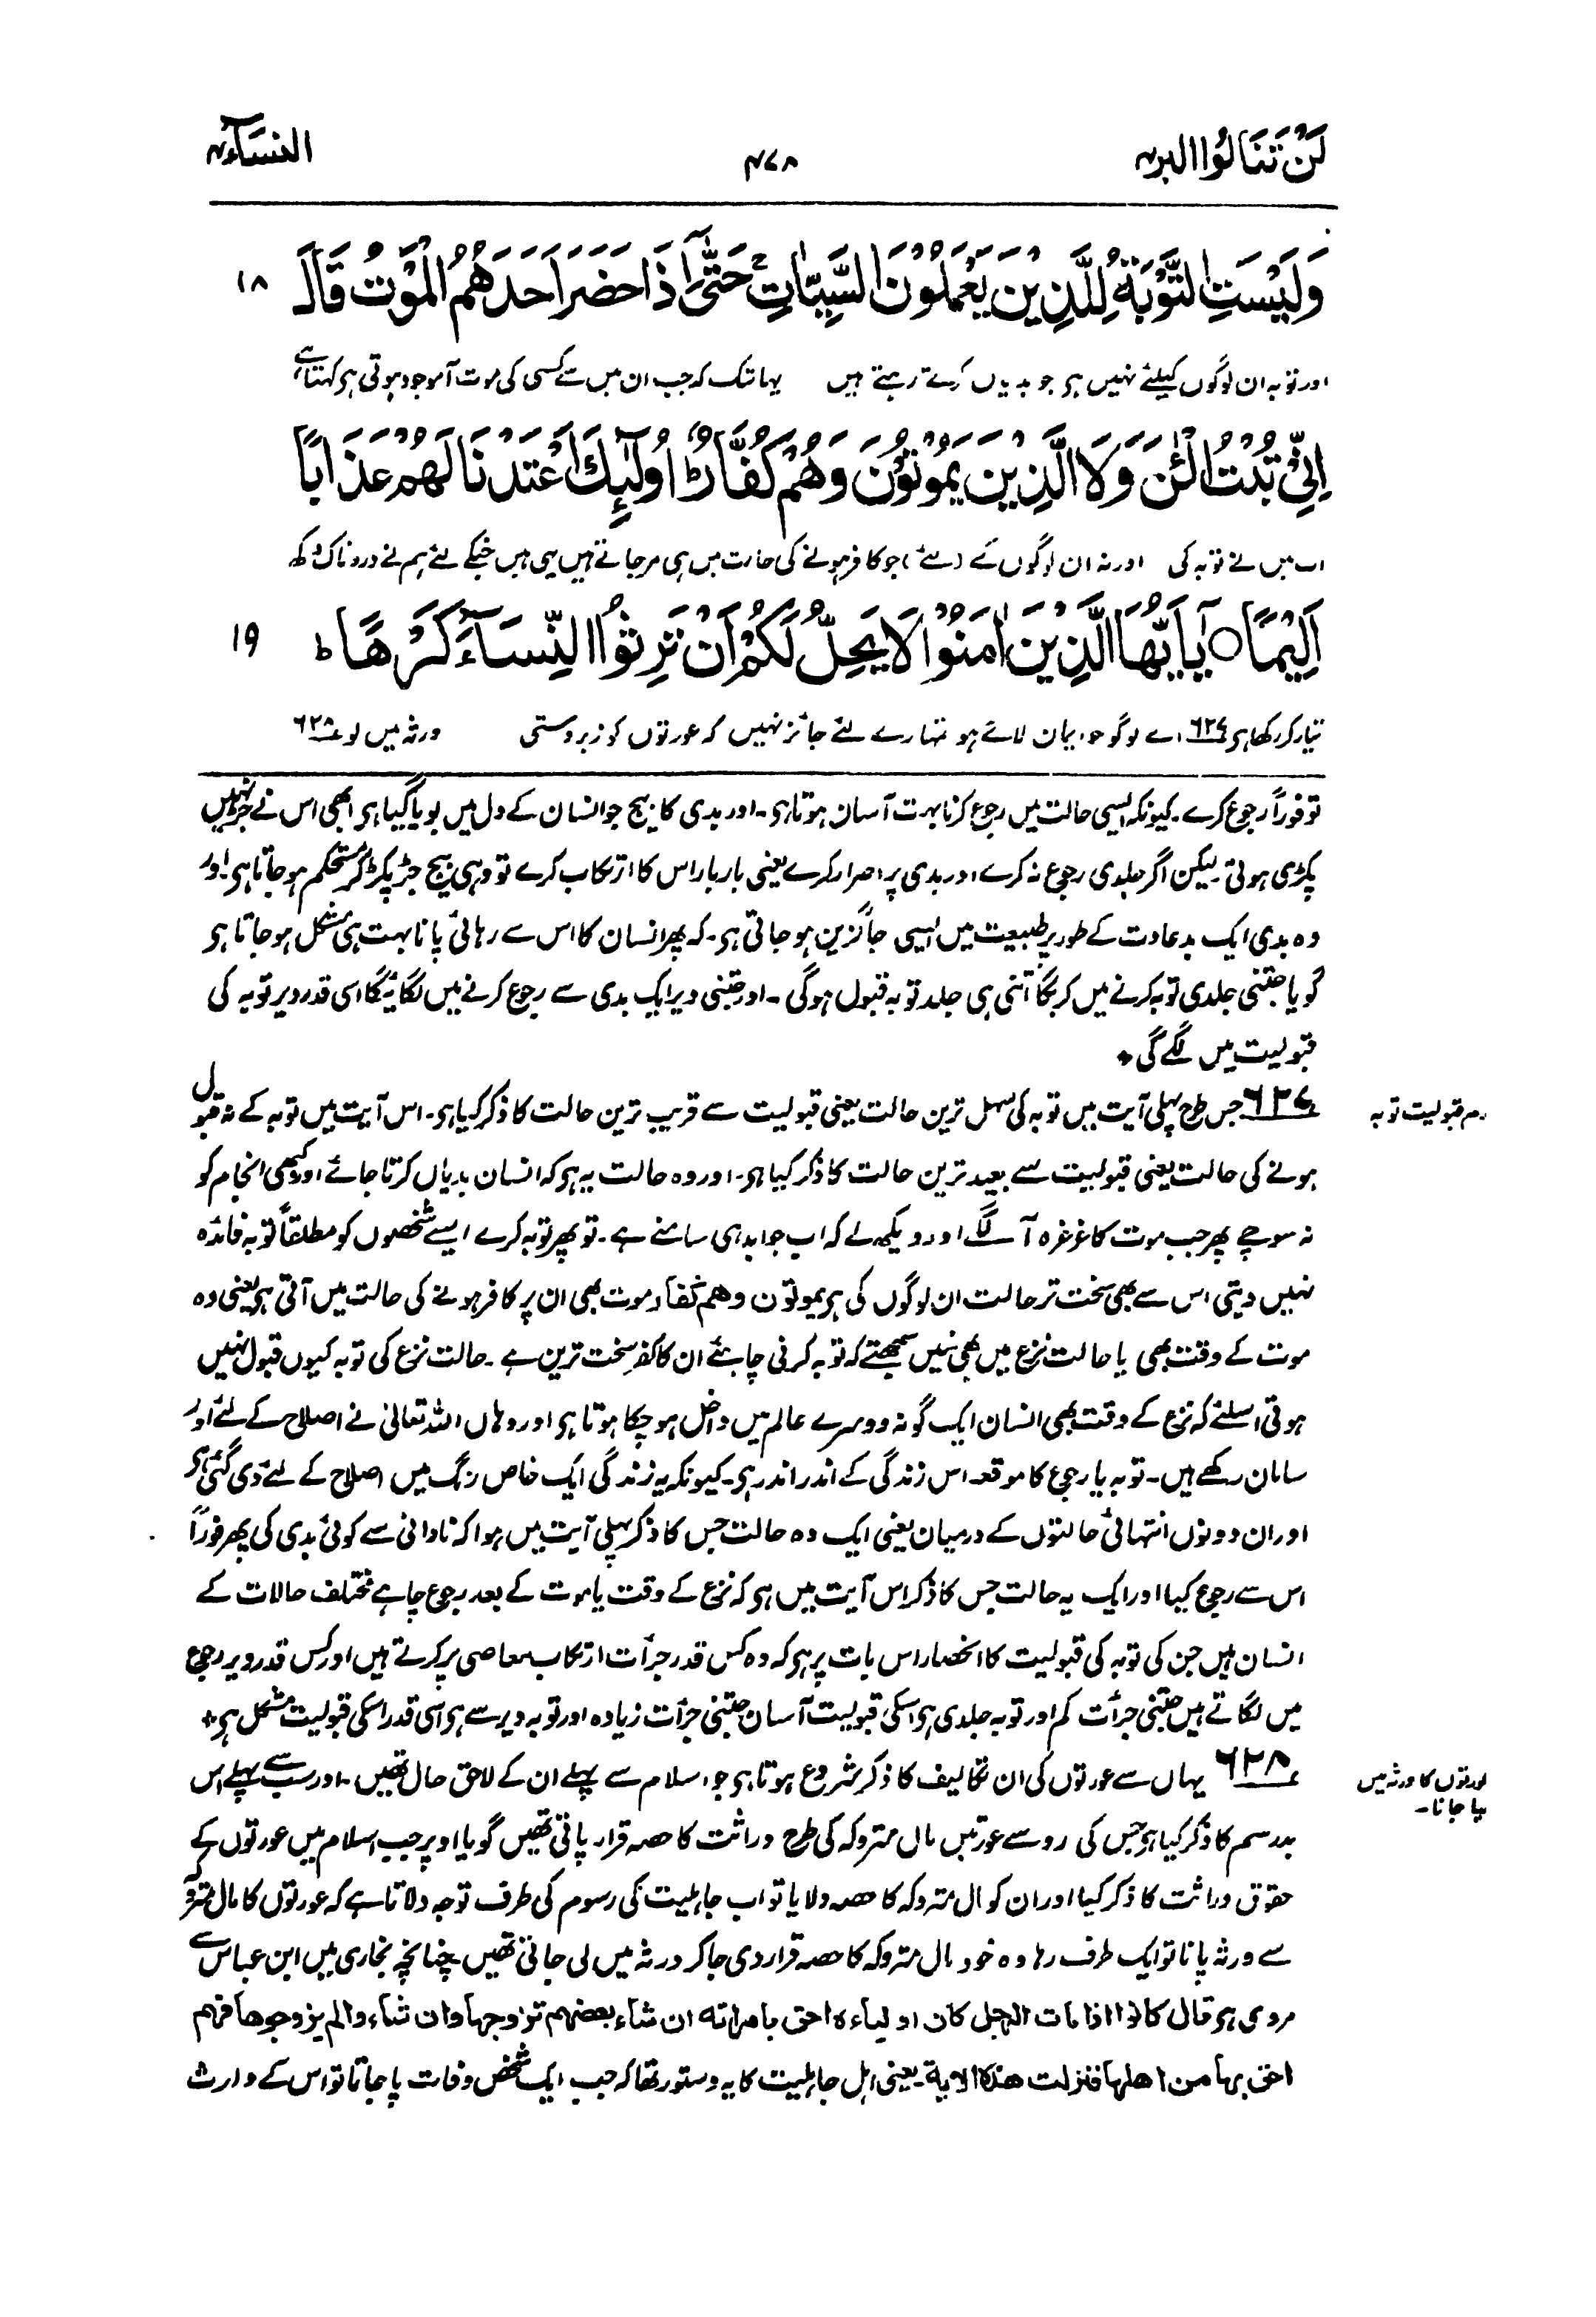 لَنْ تَنَالُوا البر۴
۴۷۸
النِّسَآء۴
وَلَيْسَتِ التَّوْبَةُ لِلَّذِيْنَ يَعْمَلُوْنَ السَّيِّاٰتِ ۚ حَتّٰٓى اِذَا حَضَرَ اَحَدَهُمُ الْمَوْتُ قَالَ
۱۸
اور توبہ ان لوگوں کیلئے نہیں ہی جو بدیاں کرتے رہتے ہیں یہانتک کہ جب ان میں سے کسی کی موت آموجود ہوتی ہی کہتا ہے
اِنِّيْ تُبْتُ الْـٰٔنَ وَلَا الَّذِيْنَ يَمُوْتُوْنَ وَهُمْ كُفَّارٌ ؕ اُولٰٓئِكَ اَعْتَدْنَا لَهُمْ عَذَابًا
اب میں نے توبہ کی اور نہ ان لوگوں کے (لئے) جو کافر ہونے کی حالت میں ہی مر جاتے ہیں یہی ہیں جنکے لئے ہم نے دردناک دکھ
اَلِيْمًا ○ يٰۤاَيُّهَا الَّذِيْنَ اٰمَنُوْا لَا يَحِلُّ لَكُمْ اَنْ تَرِثُوا النِّسَآءَ كَرْهًا ؕ
۱۹
تیار کر رکھا ہی ۶۲۷ اے لوگو جو ایمان لائے ہو تمہارے لئے جائز نہیں کہ عورتوں کو زبردستی ورثہ میں لو ۶۲۸
تو فوراً رجوع کرے۔ کیونکہ ایسی حالت میں رجوع کرنا بہت آسان ہوتا ہی۔ اور بدی کا بیج جو انسان کے دل میں بویا گیا ہی ابھی اس نے جڑ نہیں
پکڑی ہوتی۔ لیکن اگر جلدی رجوع نہ کرے اور بدی پر اصرار کرے یعنی بار بار اس کا ارتکاب کرے تو وہی بیج جڑ پکڑ کر مستحکم ہو جاتا ہی۔ اور
وہ بدی ایک بد عادت کے طور پر طبیعت میں ایسی جاگزین ہو جاتی ہی۔ کہ پھر انسان کا اس سے رہائی پانا بہت ہی مشکل ہو جاتا ہی
گویا جتنی جلدی توبہ کرنے میں کریگا اتنی ہی جلد توبہ قبول ہوگی۔ اور جتنی دیر ایک بدی سے رجوع کرنے میں لگائیگا اسی قدر دیر توبہ کی
قبولیت میں لگے گی +
عدم قبولیت توبہ
۶۲۷ جس طرح پہلی آیت میں توبہ کی سہل ترین حالت یعنی قبولیت سے قریب ترین حالت کا ذکر کیا ہی۔ اس آیت میں توبہ کے نہ قبول
ہونے کی حالت یعنی قبولیت سے بعید ترین حالت کا ذکر کیا ہی۔ اور وہ حالت یہ ہی کہ انسان بدیاں کرتا جائے اور کبھی انجام کو
نہ سوچے پھر جب موت کا غرغرہ آ لگے اور دیکھ لے کہ اب جوابدہی سامنے ہے۔ تو پھر توبہ کرے ایسے شخصوں کو مطلقاً توبہ فائدہ
نہیں دیتی اس سے بھی سخت تر حالت ان لوگوں کی ہی یموتون وھم کفار موت بھی ان پر کافر ہونے کی حالت میں آتی ہی یعنی وہ
موت کے وقت بھی یا حالت نزع میں بھی نہیں سمجھتے کہ توبہ کرنی چاہئے ان کا کفر سخت ترین ہے۔ حالت نزع کی توبہ کیوں قبول نہیں
ہوتی اسلئے کہ نزع کے وقت بھی انسان ایک گونہ دوسرے عالم میں داخل ہو چکا ہوتا ہی اور وہاں اللہ تعالیٰ نے اصلاح کے لئے اور
سامان رکھے ہیں۔ توبہ یا رجوع کا موقعہ اس زندگی کے اندر اندر ہی۔ کیونکہ یہ زندگی ایک خاص رنگ میں اصلاح کے لئے دی گئی ہی
اور ان دونوں انتہائی حالتوں کے درمیان یعنی ایک وہ حالت جس کا ذکر پہلی آیت میں ہوا کہ نادانی سے کوئی بدی کی پھر فوراً
اس سے رجوع کیا اور ایک یہ حالت جس کا ذکر اس آیت میں ہی کہ نزع کے وقت یا موت کے بعد رجوع چاہے مختلف حالات کے
انسان ہیں جن کی توبہ کی قبولیت کا انحصار اس بات پر ہی کہ وہ کس قدر جرأت ارتکاب معاصی پر کرتے ہیں اور کس قدر دیر رجوع
میں لگاتے ہیں جتنی جرأت کم اور توبہ جلدی ہی اسکی قبولیت آسان جتنی جرأت زیادہ اور توبہ دیر سے ہی اسی قدر اسکی قبولیت مشکل ہی +
عورتوں کا ورثہ میں
لیا جانا۔
۶۲۸ یہاں سے عورتوں کی ان تکالیف کا ذکر شروع ہوتا ہی جو اسلام سے پہلے ان کے لاحق حال تھیں۔ اور سب سے پہلے اس
بد رسم کا ذکر کیا ہی جس کی رو سے عورتیں مال متروکہ کی طرح وراثت کا حصہ قرار پاتی تھیں گویا اوپر جب اسلام میں عورتوں کے
حقوق وراثت کا ذکر کیا اور ان کو مال متروکہ کا حصہ دلایا تو اب جاہلیت کی رسوم کی طرف توجہ دلاتا ہے کہ عورتوں کا مال متروکہ
سے ورثہ پانا تو ایک طرف رہا وہ خود مال متروکہ کا حصہ قرار دی جا کر ورثہ میں لی جاتی تھیں۔ چنانچہ بخاری میں ابن عباس سے
مروی ہی قال کانوا اذا مات الرجل کان اولیاءہ احق بامراتہ ان شاء بعضہم تزوجہا وان شاء والم یزوجوھا فہم
احق بہا من اھلہا فنزلت ھذہ الایۃ۔ یعنی اہل جاہلیت کا یہ دستور تھا کہ جب ایک شخص وفات پا جاتا تو اس کے وارث